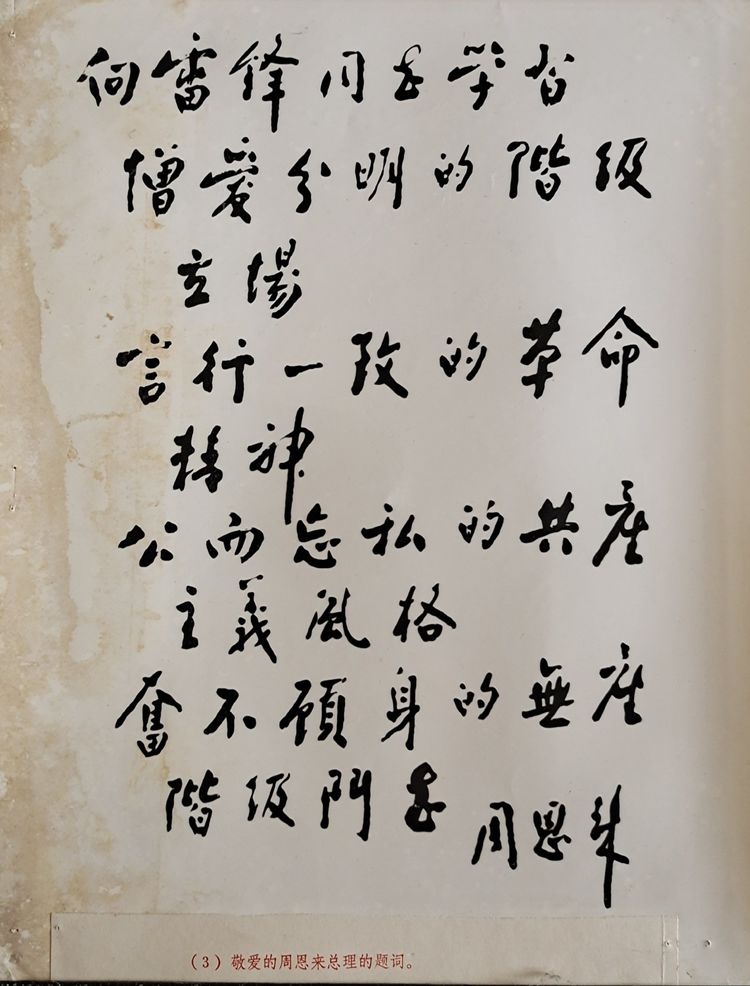 向雷锋同志学习
憎爱分明的階级
立場
言行一致的革命
精神
公而忘私的共产
主義风格
奮不顧身的無产
階级鬥志
周恩来
（3）敬爱的周恩来总理的题词。